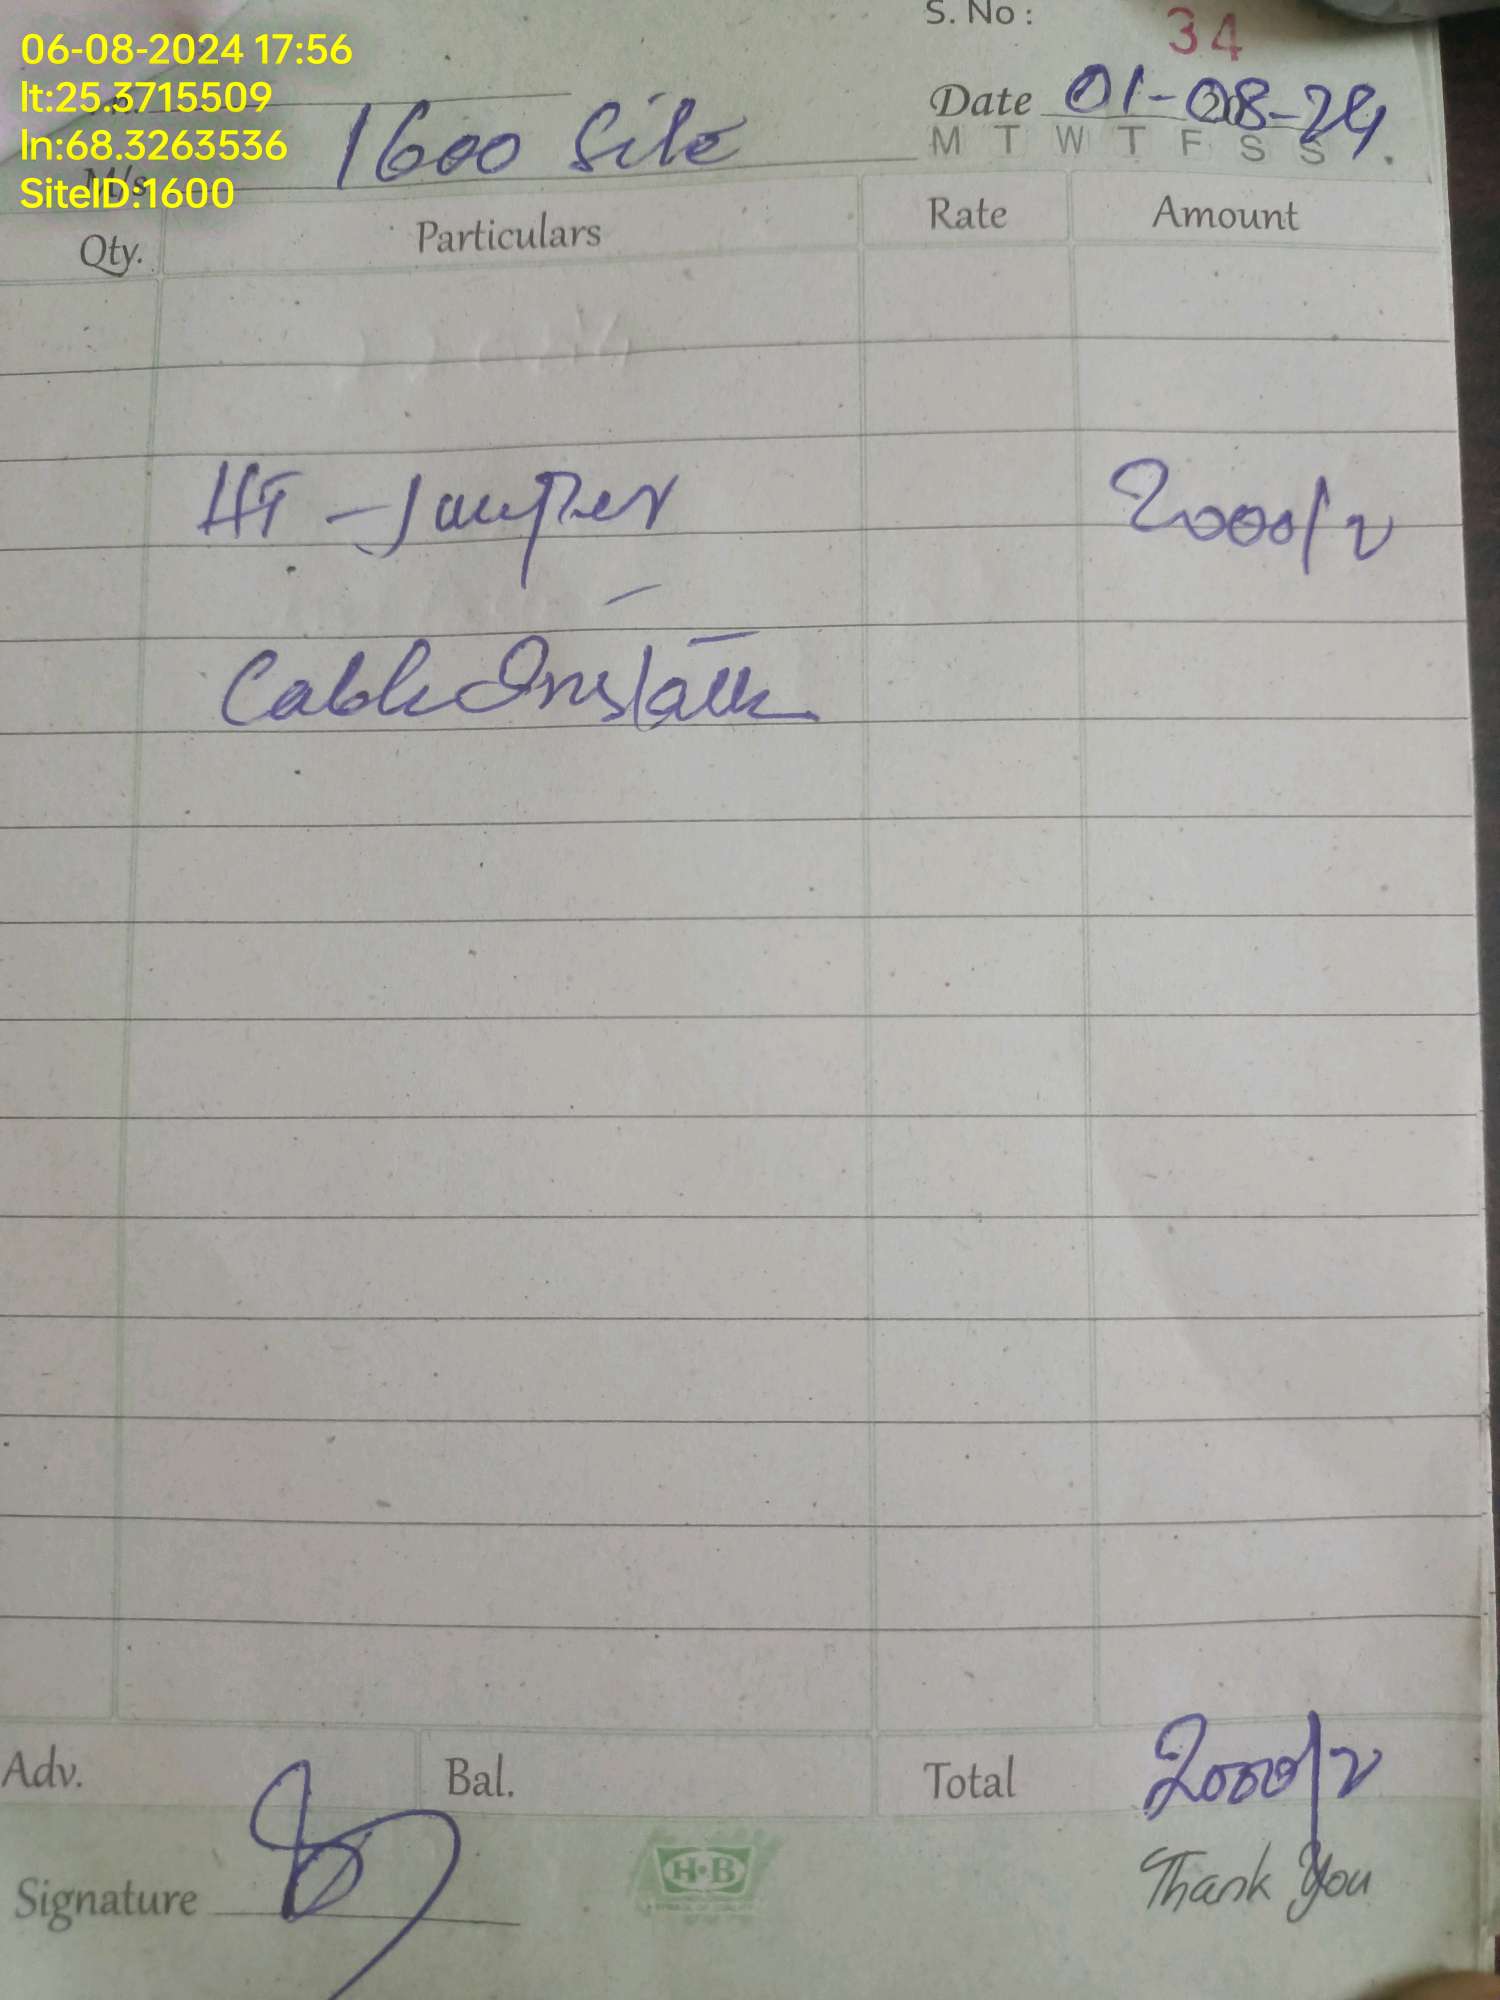 06-08-2024 17:56
lt:25.3715509
ln:68.3263536
SiteID:1600
S. No : 34
Date 01-08-24
M T W T F S S
M/s 1600 Site
Qty. Particulars Rate Amount
HT - Jumper 2000/
Cable Install
Adv. Bal. Total 2000/
Signature
H·B
Thank You